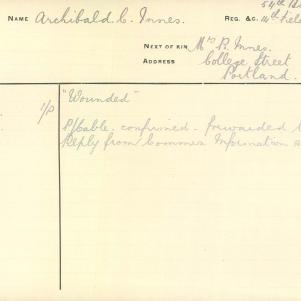 54th
NAME Archibald. C. Innes. REG. &C.
NEXT OF KIN Mrs P. Innes.
ADDRESS College Street
Portland.
1/P "Wounded"
P/Cable. confirmed - forwarded
Reply from Commer Information